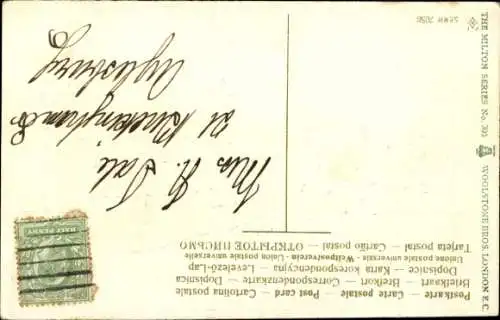 Postkarte — Carte postale — Post card — Cartolina postale
Briefkaart — Brefkort — Correspondenzkarte — Dopisnica
Dopisnice — Karta korespondencyjna — Levelező-Lap
Union postale universelle - Weltpostverein - Unione postale universale
Tarjeta postal — Cartão postal — ОТКРЫТОЕ ПИСЬМО
HALF PENNY
Mrs H. Dale
21 Buckingham St
Aylesbury
THE MILTON SERIES No.
WOOLSTONE BROS. LONDON E.C.